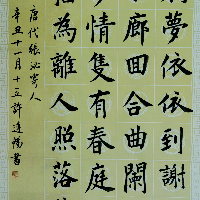 夢依依到謝
廊回合曲闌
情隻有春庭
為離人照落
唐代張泌寄人
辛丑十一月十五許書